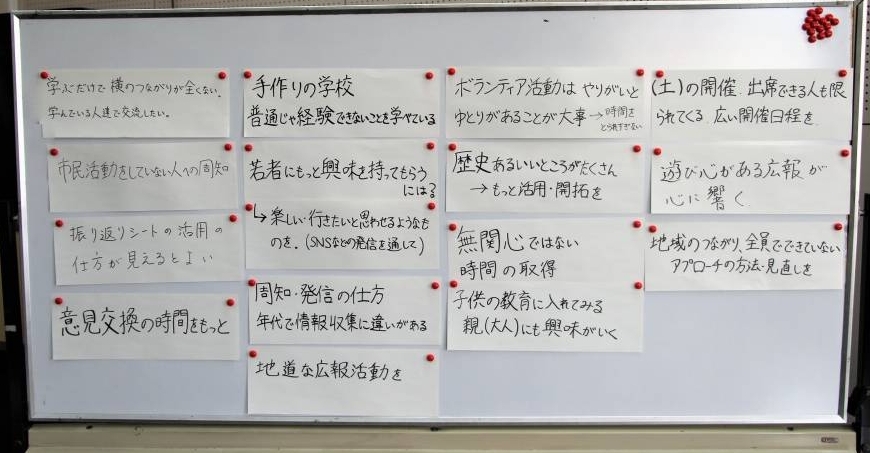 学ぶだけで横のつながりが全くない。
学んでいる人達で交流したい。
市民活動をしていない人への周知
振り返りシートの活用の
仕方が見えるとよい
意見交換の時間をもっと
手作りの学校
普通じゃ経験できないことを学べている
若者にもっと興味を持ってもらう
には?
↳楽しい・行きたいと思わせるようなも
のを。(SNSなどの発信を通して)
周知・発信の仕方
年代で情報収集に違いがある
地道な広報活動を
ボランティア活動は やりがいと
ゆとりがあることが大事→時間を
とられすぎない
歴史あるいいところがたくさん
→もっと活用・開拓を
無関心ではない
時間の取得
子供の教育に入れてみる
親(大人)にも興味がいく
(土)の開催、出席できる人も限
られてくる 広い開催日程を
遊び心がある広報が
心に響く
地域のつながり、全員でできていない
アプローチの方法・見直しを